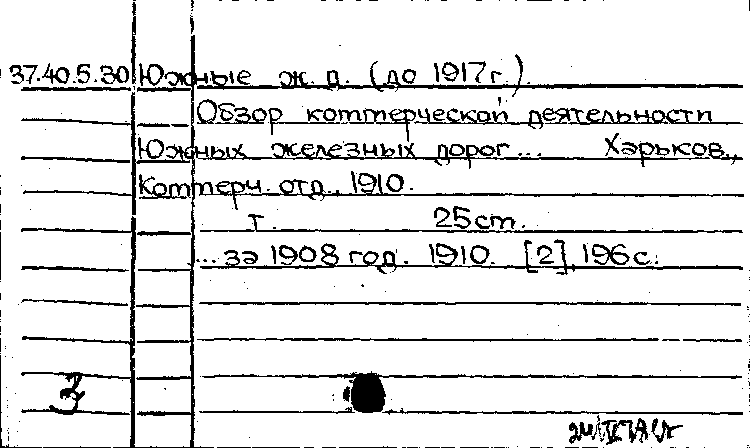 37.40.5.30 Южные ж.д. (до 1917г.)
Обзор коммерческой деятельности
Южных железных дорог... Харьков.,
Коммерч. отд., 1910.
т. 25 см.
... за 1908 год. 1910. [2], 196 с.
З